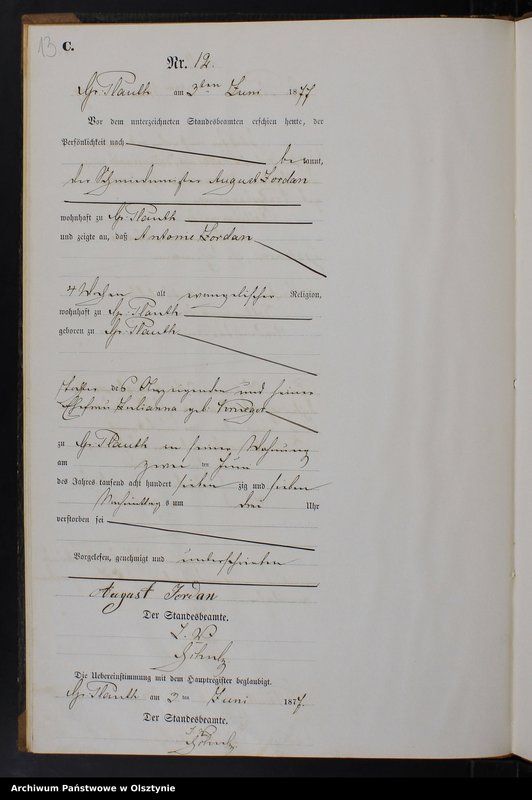 13
C.
Nr. 12.
Gr. Plauth am 3ten Juni 1877
Vor dem unterzeichneten Standesbeamten erschien heute, der
Persönlichkeit nach
be kannt,
der Schmiedemeister August Jordan
wohnhaft zu Gr. Plauth
und zeigte an, daß Antonie Jordan
4 Wochen alt evangelischer Religion,
wohnhaft zu Gr. Plauth
geboren zu Gr. Plauth
Tochter des Anzeigenden und seiner
Ehefrau Julianna geb. Krueger
zu Gr. Plauth in seiner Wohnung
am zwei ten Juni
des Jahres tausend acht hundert sieben zig und sieben
Nachmittag s um drei Uhr
verstorben sei
Vorgelesen, genehmigt und unterschrieben
August Jordan
Der Standesbeamte.
Die Uebereinstimmung mit dem Hauptregister beglaubigt.
Gr. Plauth am 3 ten Juni 1877.
Der Standesbeamte.
Archiwum Państwowe w Olsztynie